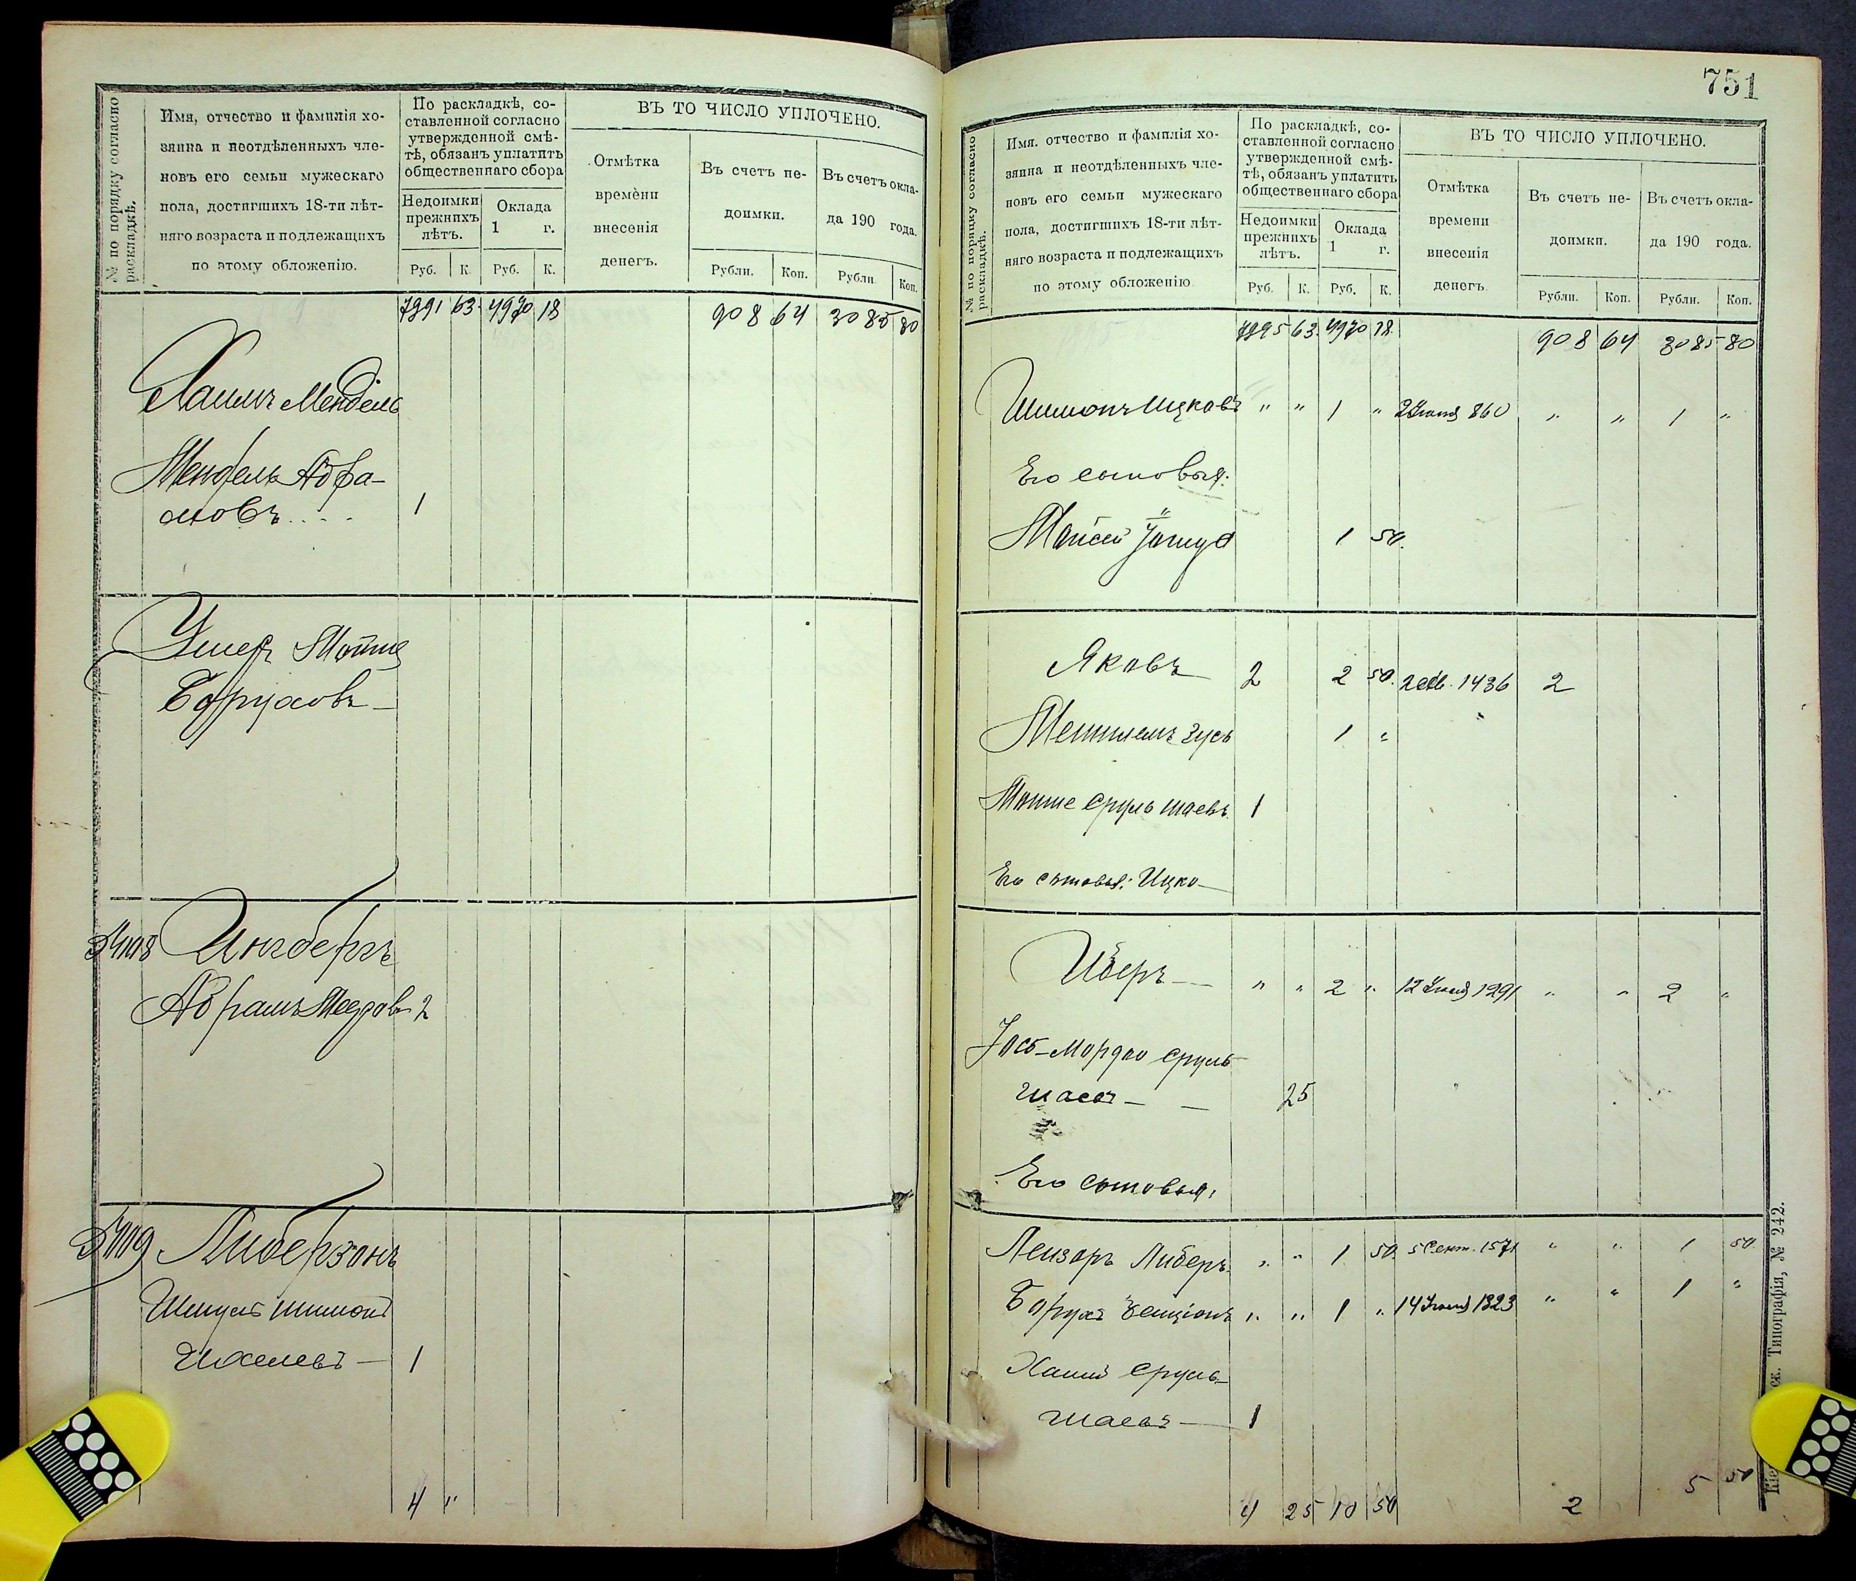 № по порядку согласно раскладкѣ.
Имя, отчество и фамилія хо-
зяина и неотдѣленныхъ чле-
новъ его семьи мужескаго
пола, достигшихъ 18-ти лѣт-
няго возраста и подлежащихъ
по этому обложенію.
По раскладкѣ, со-
ставленной согласно
утвержденной смѣ-
тѣ, обязанъ уплатить
общественнаго сбора
Недоимки
прежнихъ
лѣтъ.
Оклада
1 г.
Руб. К. Руб. К.
ВЪ ТО ЧИСЛО УПЛОЧЕНО.
Отмѣтка
времени
внесенія
денегъ.
Въ счетъ не-
доимки.
Рубли. Коп.
Въ счетъ окла-
да 190 года.
Рубли Коп.
7891 63 4970 18 908 64 3085 80
Хаимъ Мендель
Мендель Абра-
мовъ 1
Ушеръ Мошко
Боруховъ
5408 Ингбергъ
Абрамъ 2
5409 Либерзонъ
Шмуль Шимонъ
Ихелевъ 1
4 "
751
№ по порядку согласно раскладкѣ.
Имя. отчество и фамилія хо-
зяина и неотдѣленныхъ чле-
новъ его семьи мужескаго
пола, достигшихъ 18-ти лѣт-
няго возраста и подлежащихъ
по этому обложенію
По раскладкѣ, со-
ставленной согласно
утвержденной смѣ-
тѣ, обязанъ уплатить
общественнаго сбора
Недоимки
прежнихъ
лѣтъ.
Оклада
1 г.
Руб. К. Руб. К.
ВЪ ТО ЧИСЛО УПЛОЧЕНО.
Отмѣтка
времени
внесенія
денегъ.
Въ счетъ не-
доимки.
Рубли. Коп.
Въ счетъ окла-
да 190 года.
Рубли. Коп.
7895 63 4970 18 908 64 3085 80
Шимонъ Ицковъ " " 1 " 860 " " 1 "
Его сыновья:
Мойсей Іошуа 1 50
Яковъ 2 2 50 1436 2
Мешилемъ Зусь 1 "
Мошке Сруль Шаевъ 1
Его сыновья: Ицко
Иберъ " " 2 " 12 1291 " " 2 "
Іосъ-Мордко Сруль
Шаевъ 25
Его сыновья:
Лейзоръ Либеръ " " 1 50 5 Сент. 1571 " " 1 50
Борухъ Бенціонъ " " 1 " 14 1323 " " 1 "
Хаимъ Сруль
Шаевъ 1
4 25 10 50 2 5 50
Типографія, № 242.